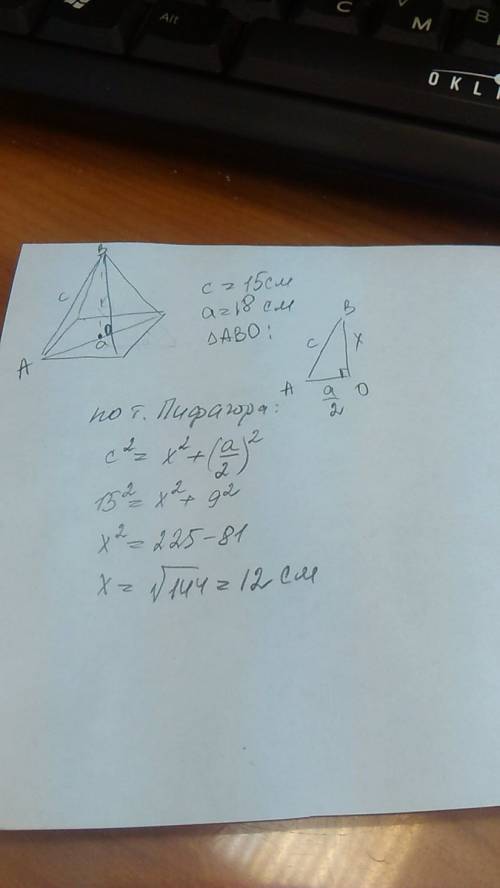 Alt
C
V
M
B
OKLI
B
c
O
a
A
c = 15см
a = 18 см
△ABO:
B
c
x
A
a/2
O
по т. Пифагора:
c² = x² + (a/2)²
15² = x² + 9²
x² = 225 - 81
x = √144 = 12 см